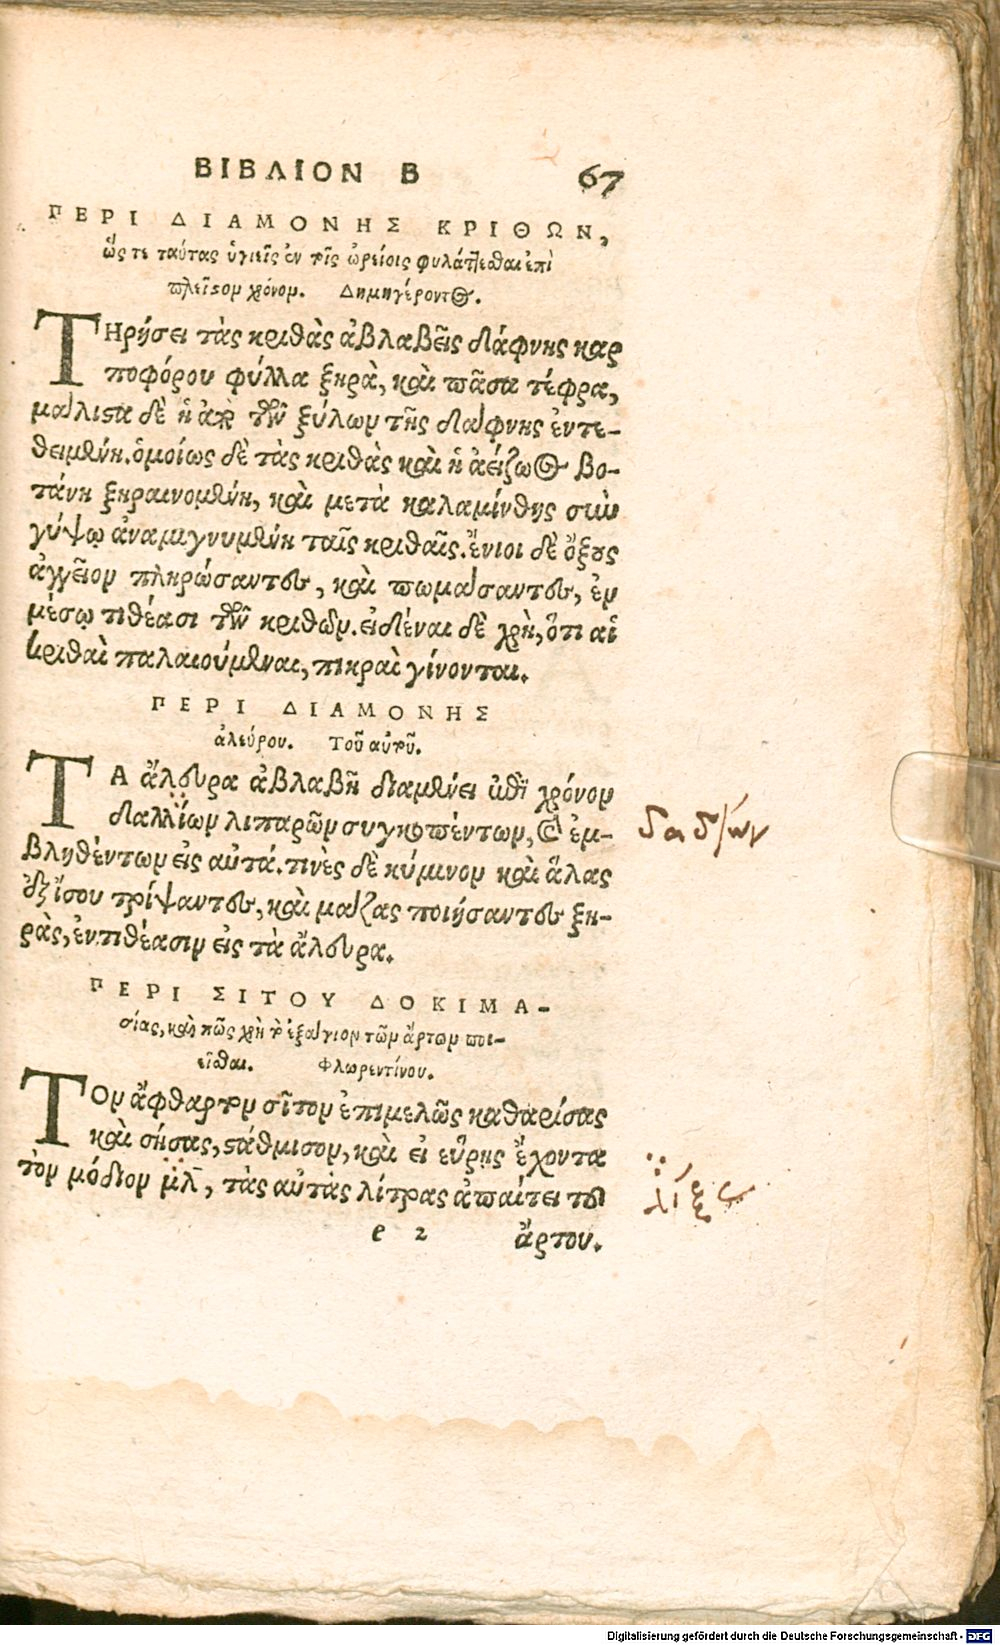 ΒΙΒΛΙΟΝ Β 67
ΠΕΡΙ ΔΙΑΜΟΝΗΣ ΚΡΙΘΩΝ,
ὥς τε ταύτας ὑγιεῖς ἐν τοῖς ὡρείοις φυλάττεσθαι ἐπὶ
πλεῖστον χρόνον. Δημηγέροντος.
ΤΗρήσει τὰς κριθὰς ἀβλαβεῖς δάφνης καρ
ποφόρου φύλλα ξηρὰ, καὶ πᾶσα τέφρα,
μάλιστα δὲ ἡ ἀπὸ τῶν ξύλων τῆς δάφνης ἐντε-
θειμένη. ὁμοίως δὲ τὰς κριθὰς καὶ ἡ ἀείζωος βο-
τάνη ξηραινομένη, καὶ μετὰ καλαμίνθης σὺν
γύψῳ ἀναμιγνυμένη ταῖς κριθαῖς. ἔνιοι δὲ ὄξους
ἀγγεῖον πληρώσαντες, καὶ πωμάσαντες, ἐν
μέσῳ τιθέασι τῶν κριθῶν. εἰδέναι δὲ χρὴ, ὅτι αἱ
κριθαὶ παλαιούμεναι, πικραὶ γίνονται.
ΠΕΡΙ ΔΙΑΜΟΝΗΣ
ἀλεύρου. Τοῦ αὐτοῦ.
ΤΑ ἄλευρα ἀβλαβῆ διαμένει ἐπὶ χρόνον
δαλλίων λιπαρῶν συγκοπέντων, καὶ ἐμ-
βληθέντων εἰς αὐτά. τινὲς δὲ κύμινον καὶ ἅλας
ἐξ ἴσου τρίψαντες, καὶ μάζας ποιήσαντες ξη-
ρὰς, ἐντιθέασιν εἰς τὰ ἄλευρα.
δαδίων
ΠΕΡΙ ΣΙΤΟΥ ΔΟΚΙΜΑ-
σίας, καὶ πῶς χρὴ τὸ ἐξάγιον τῶν ἄρτων ποι-
εῖσθαι. Φλωρεντίνου.
ΤΟν ἄφθαρτον σῖτον ἐπιμελῶς καθαρίσας
καὶ σήσας, στάθμισον, καὶ εἰ εὕρῃς ἔχοντα
τὸν μόδιον μλ̄, τὰς αὐτὰς λίτρας ἀπαίτει τοῦ
e 2 ἄρτου.
Digitalisierung gefördert durch die Deutsche Forschungsgemeinschaft - DFG